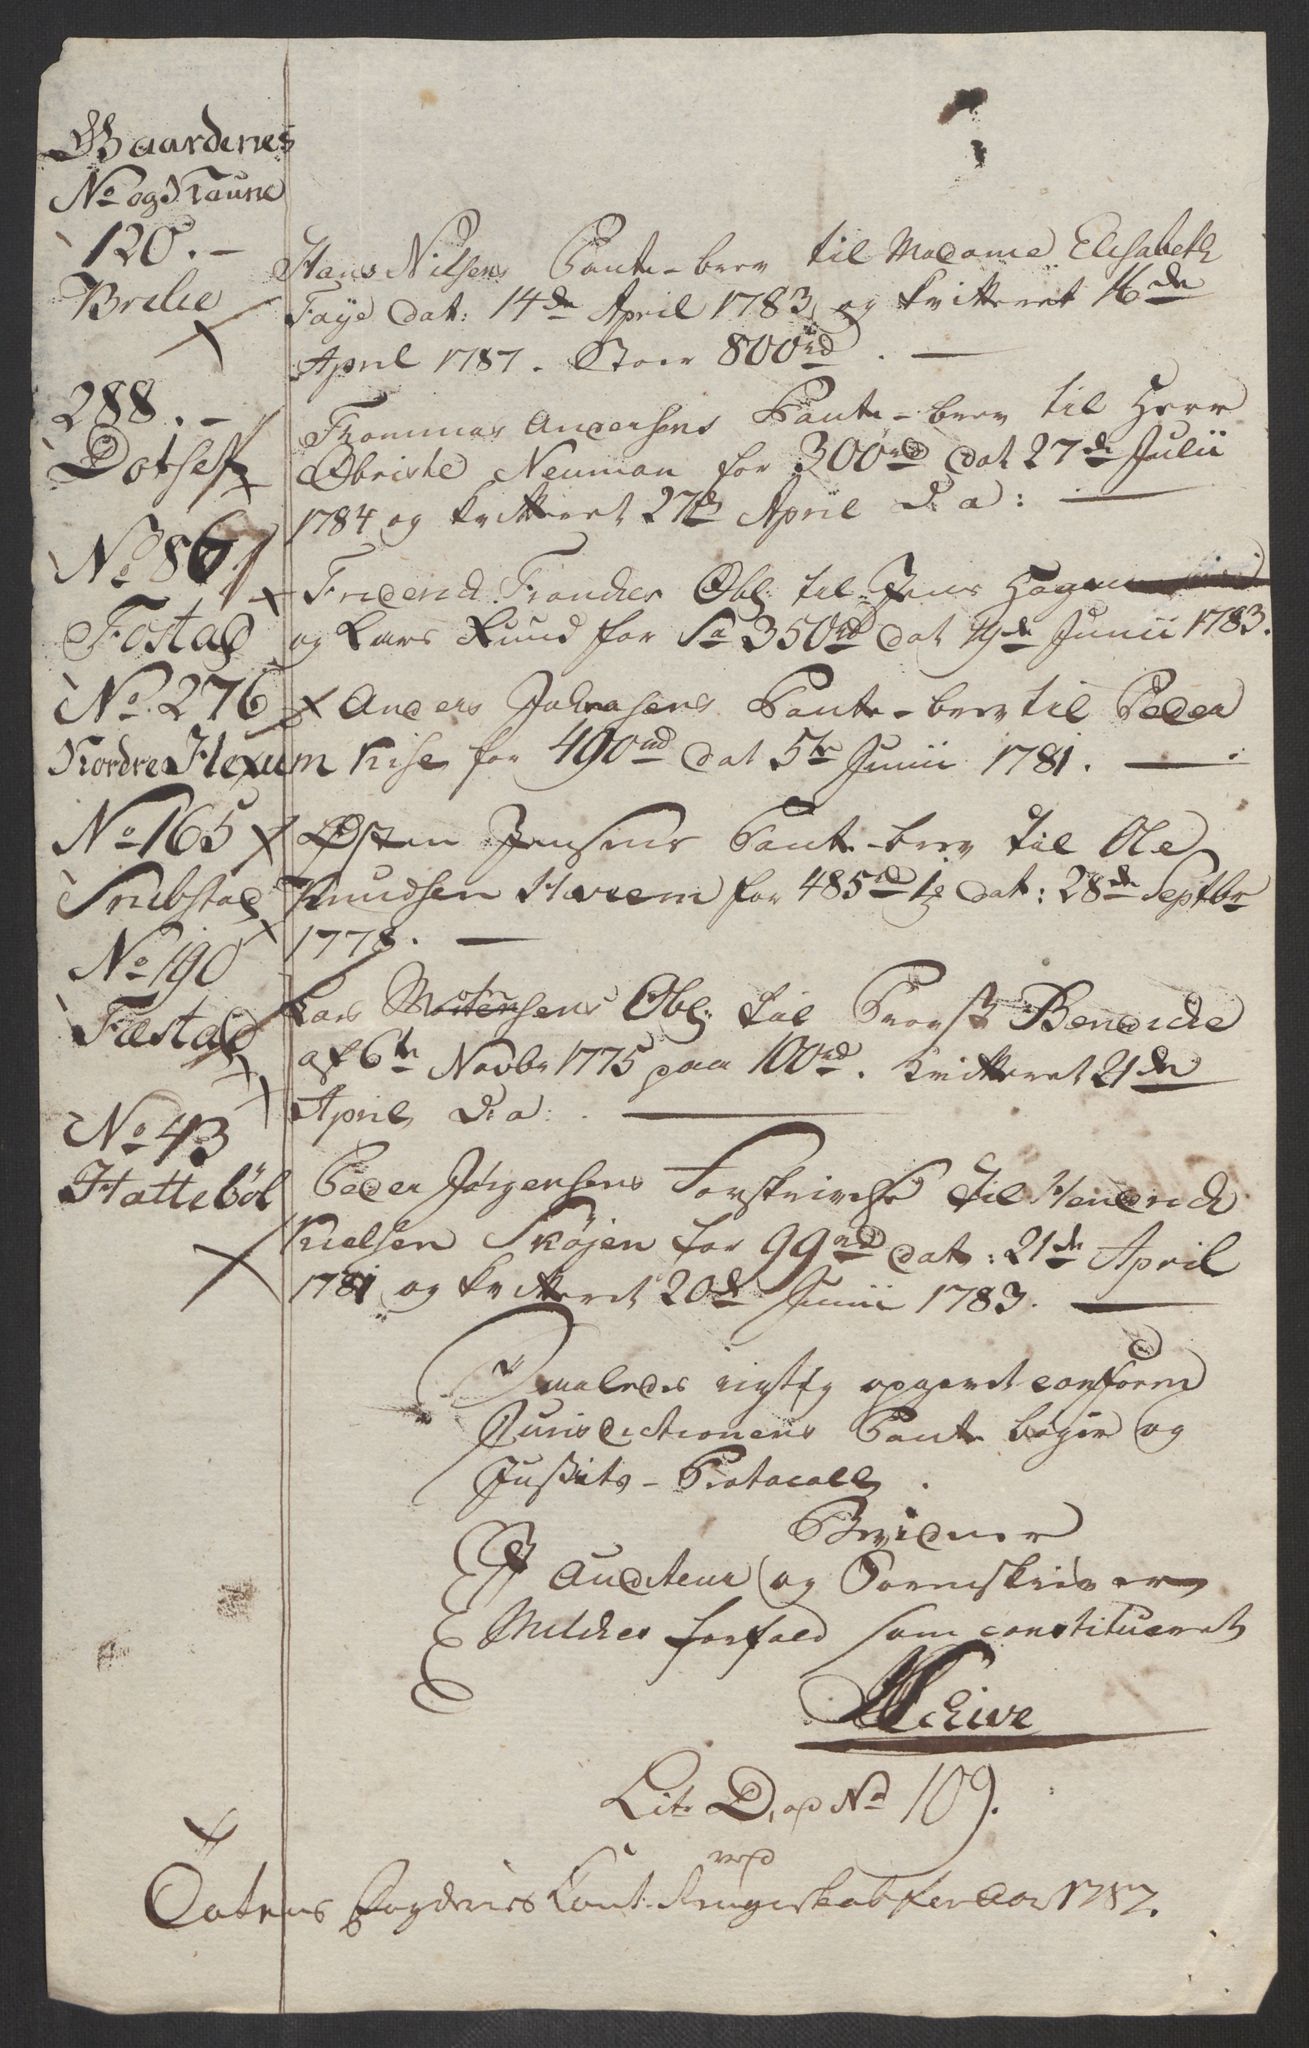 Gaardenes
No og Naune
120. –
Brelie
Hans Nilsens Pante-brev til Madame Elisabeth
Faye dat: 14de April 1783 og kvitteret 16de
April 1787. Stoer 800rd. –
288. –
Dotset
Thommas Andersens Pante-brev til Herr
Obriste Neuman for 300rd dat 27de Julii
1784 og kvitteret 27de April d: a: –
No 86
Fostad
Friderich Francker Obl: til Jens Hagen
og Lars Lund for Sa 350rd dat 19de Junii 1783.
No 276
Nordre Hexum
Anders Johnsens Pante-brev til Peder
Kise for 490rd dat 5te Junii 1781. –
No 165
Snibstad
Østen Jensens Pante-brev til Ole
Knudsen Hveem for 485rd 1 dat: 28de Septbr
1778. –
No 190
Fæstad
Lars Mortensens Obl: til Provst Bendicke
af 6te Novbr 1775 paa 100rd. kvitteret 21de
April d: a: –
No 43
Hattebøl
Peder Jørgensens Forskrivelse til Hendrich
Nielsen Skøjen for 99rd dat: 21de April
1781 og kvitteret 20de Junii 1783. –
Saaledes rigtig opgivet conform
Jurisdictionens Pante bøger og
Justits-Protocoll.
Bevidner
I Auditeur og Sorenskriver
Melches forfald som constitueret
Schive
Litr D, og No 109.
ved
Totens Fogderies Cont: Regnskab for Aar 1787.